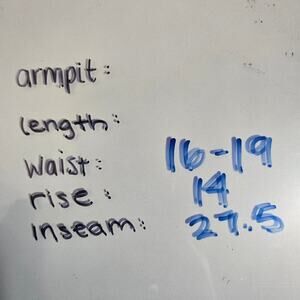 armpit:
length:
waist: 16-19
rise: 14
inseam: 27.5